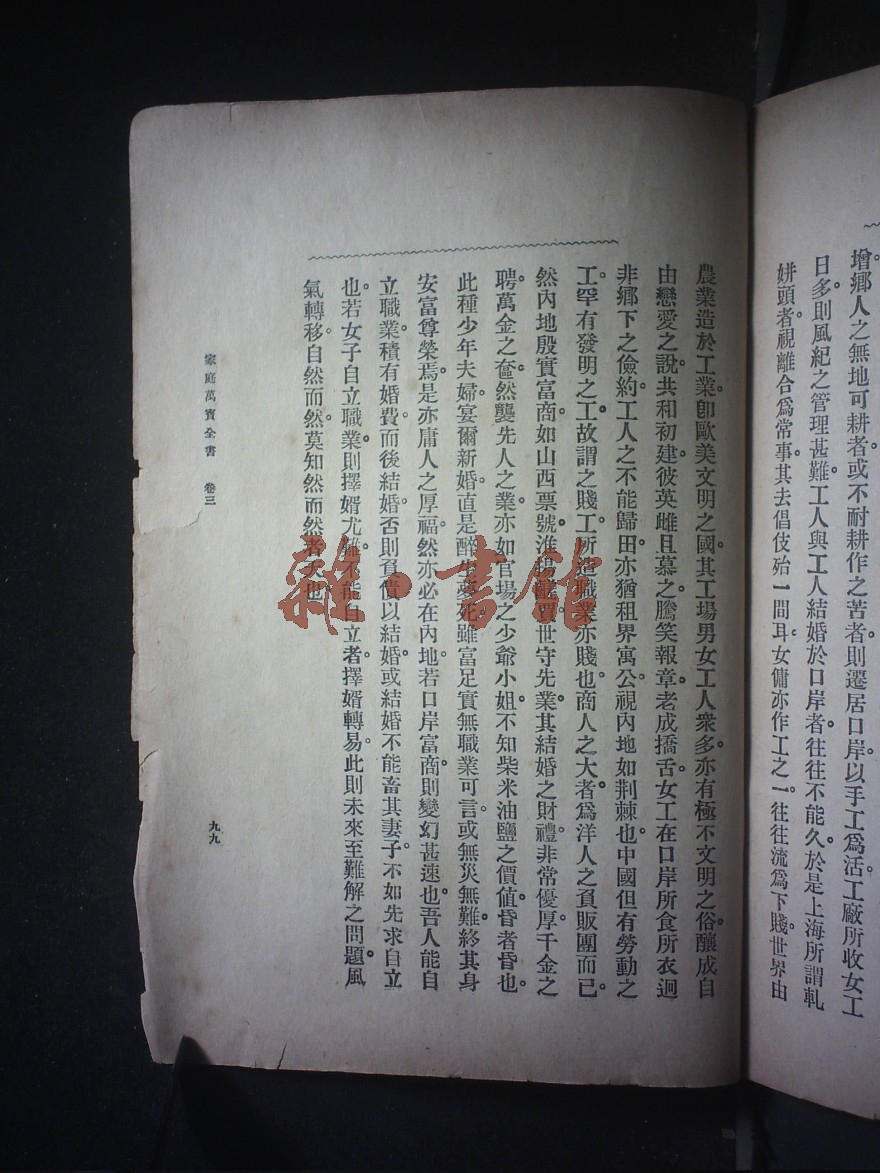 增鄉人之無地可耕者。或不耐耕作之苦者。則遷居口岸。以手工爲活。工廠所收女工
日多。則風紀之管理甚難。工人與工人結婚於口岸者。往往不能久。於是上海所謂軋
姘頭者。視離合爲常事。其去倡伎殆一間耳。女傭亦作工之一。往往流爲下賤。世界由
農業造於工業。卽歐美文明之國。其工場男女工人衆多。亦有極不文明之俗。釀成自
由戀愛之說。共和初建。彼英雌且慕之。騰笑報章。老成撟舌。女工在口岸所食所衣。迥
非鄉下之儉約。工人之不能歸田。亦猶租界寓公視內地如荆棘也。中國但有勞動之
工。罕有發明之工。故謂之賤工。所造職業亦賤也。商人之大者。爲洋人之負販團而已。
然內地殷實富商。如山西票號。淮揚鹽賈。世守先業。其結婚之財禮。非常優厚。千金之
聘。萬金之奩。然襲先人之業。亦如官場之少爺小姐。不知柴米油鹽之價値。昏者昏也。
此種少年夫婦。宴爾新婚。直是醉生夢死。雖富足實無職業可言。或無災無難。終其身
安富尊榮焉。是亦庸人之厚福。然亦必在內地。若口岸富商。則變幻甚速也。吾人能自
立職業。積有婚費而後結婚。否則負債以結婚。或結婚不能畜其妻子。不如先求自立
也。若女子自立職業。則擇婿尤難。不能自立者。擇婿轉易。此則未來至難解之問題。風
氣轉移。自然而然。莫知然而然者。天也。
家庭萬寶全書 卷三
九九
雜·書館